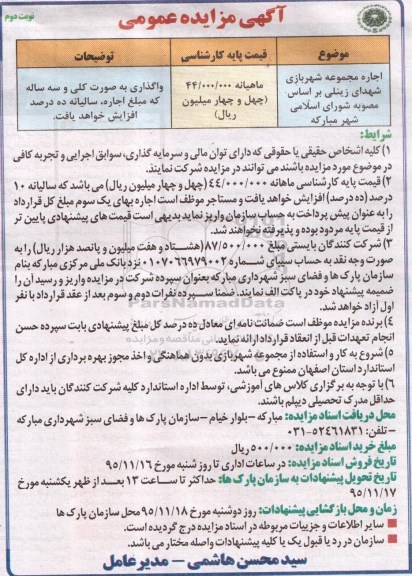 آگهی مزایده عمومی
نوبت دوم
موضوع
قیمت پایه کارشناسی
توضیحات
اجاره مجموعه شهربازی
شهدای زینلی بر اساس
مصوبه شورای اسلامی
شهر مبارکه
ماهیانه ۴۴/۰۰۰/۰۰۰
(چهل و چهار میلیون
ریال)
واگذاری به صورت کلی و سه ساله
که مبلغ اجاره، سالیانه ده درصد
افزایش خواهد یافت.
شرایط:
۱) کلیه اشخاص حقیقی یا حقوقی که دارای توان مالی و سرمایه گذاری، سوابق اجرایی و تجربه کافی
در موضوع مورد مزایده باشند می توانند در مزایده شرکت نمایند.
۲) قیمت پایه کارشناسی ماهانه ۴۴/۰۰۰/۰۰۰ (چهل و چهار میلیون ریال) می باشد که سالیانه ۱۰
درصد (ده درصد) افزایش خواهد یافت و مستاجر موظف است اجاره بهای یک سوم مبلغ کل قرارداد
را به عنوان پیش پرداخت به حساب سازمان واریز نماید بدیهی است قیمت های پیشنهادی پایین تر
از قیمت پایه مردود بوده و پذیرفته نخواهند شد.
۳) شرکت کنندگان بایستی مبلغ ۸۷/۵۰۰/۰۰۰ (هشتاد و هفت میلیون و پانصد هزار ریال) را به
صورت وجه نقد به حساب سیبای شماره ۰۱۰۷۰۶۶۹۷۹۰۰۲ نزد بانک ملی مرکزی مبارکه بنام
سازمان پارک ها و فضای سبز شهرداری مبارکه بعنوان سپرده شرکت در مزایده واریز و رسید آن را
ضمیمه پیشنهاد خود در پاکت الف نمایند. ضمنا سپرده نفرات دوم و سوم بعد از عقد قرارداد با نفر
اول آزاد خواهد شد.
۴) برنده مزایده موظف است ضمانت نامه ای معادل ده درصد کل مبلغ پیشنهادی بابت سپرده حسن
انجام تعهدات قبل از انعقاد قرارداد ارائه نماید.
۵) شروع به کار و استفاده از مجموعه شهربازی بدون هماهنگی و اخذ مجوز بهره برداری از اداره کل
استاندارد استان اصفهان ممنوع می باشد.
۶) با توجه به برگزاری کلاس های آموزشی، توسط اداره استاندارد کلیه شرکت کنندگان باید دارای
حداقل مدرک تحصیلی دیپلم باشند.
محل دریافت اسناد مزایده: مبارکه – بلوار خیام – سازمان پارک ها و فضای سبز شهرداری مبارکه
– تلفن: ۵۲۴۶۱۸۳۱-۰۳۱
مبلغ خرید اسناد مزایده: ۵۰۰/۰۰۰ ریال
تاریخ فروش اسناد مزایده: در ساعات اداری تا روز شنبه مورخ ۹۵/۱۱/۱۶
تاریخ تحویل پیشنهادات به سازمان پارک ها: حداکثر تا ساعت ۱۳ بعد از ظهر یکشنبه مورخ
۹۵/۱۱/۱۷
زمان و محل بازگشایی پیشنهادات: روز دوشنبه مورخ ۹۵/۱۱/۱۸ محل سازمان پارک ها
سایر اطلاعات و جزییات مربوطه در اسناد مزایده درج گردیده است.
سازمان در رد یا قبول یک یا کلیه پیشنهادات واصله مختار می باشد.
سید محسن هاشمی – مدیر عامل
ParsNamadData